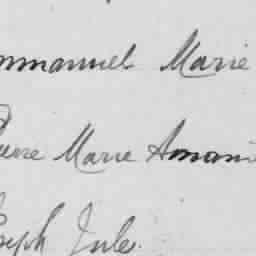 mmanuel Marie
Pierre Marie Aman
Joseph Jule